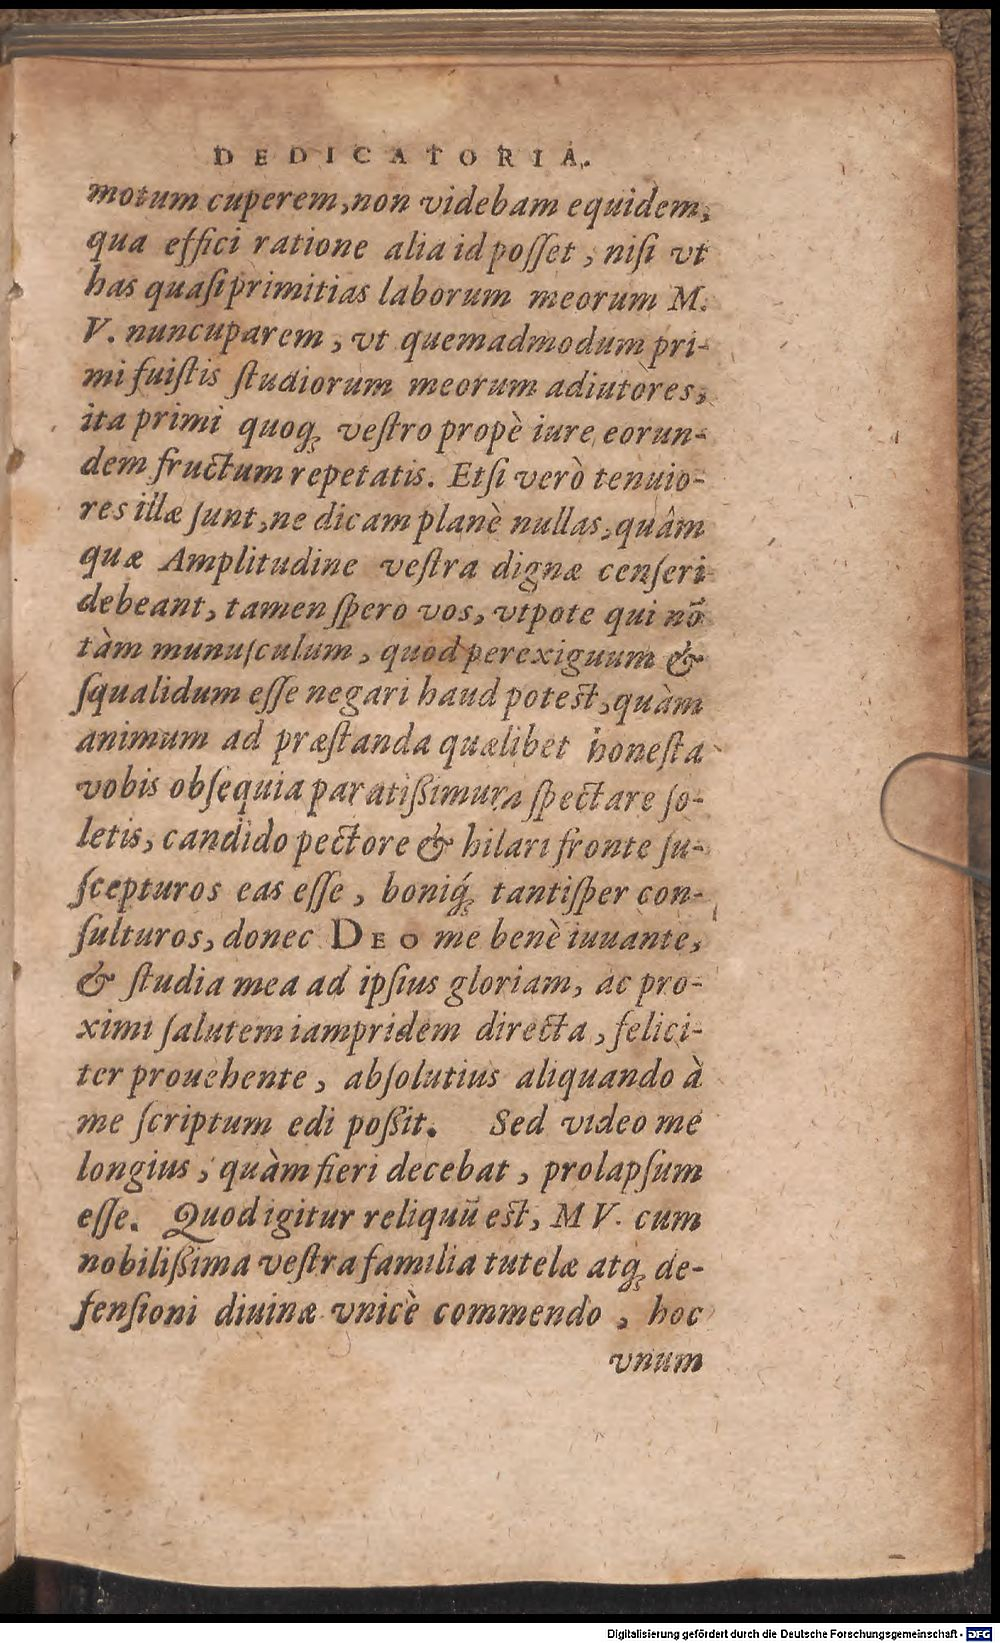 DEDICATORIA.
motum cuperem, non videbam equidem,
qua effici ratione alia id poſſet, niſi vt
has quaſi primitias laborum meorum M.
V. nuncuparem, vt quemadmodum pri-
mi fuiſtis ſtudiorum meorum adiutores,
ita primi quoq; veſtro propè iure eorun-
dem fructum repetatis. Etſi verò tenuio-
res illæ ſunt, ne dicam planè nullas, quâm
quæ Amplitudine veſtra dignæ cenſeri
debeant, tamen ſpero vos, vtpote qui nō
tàm munuſculum, quod perexiguum &
ſqualidum eſſe negari haud poteſt, quàm
animum ad præſtanda quælibet honeſta
vobis obſequia paratißimum ſpectare ſo-
letis, candido pectore & hilari fronte ſu-
ſcepturos eas eſſe, boniq́; tantiſper con-
ſulturos, donec DEO me benè iuuante,
& ſtudia mea ad ipſius gloriam, ac pro-
ximi ſalutem iampridem directa, felici-
ter prouehente, abſolutius aliquando à
me ſcriptum edi poßit. Sed video me
longius, quàm fieri decebat, prolapſum
eſſe. Quod igitur reliquū eſt, M V. cum
nobilißima veſtra familia tutelæ atq; de-
fenſioni diuinæ vnicè commendo, hoc
vnum
Digitalisierung gefördert durch die Deutsche Forschungsgemeinschaft - DFG